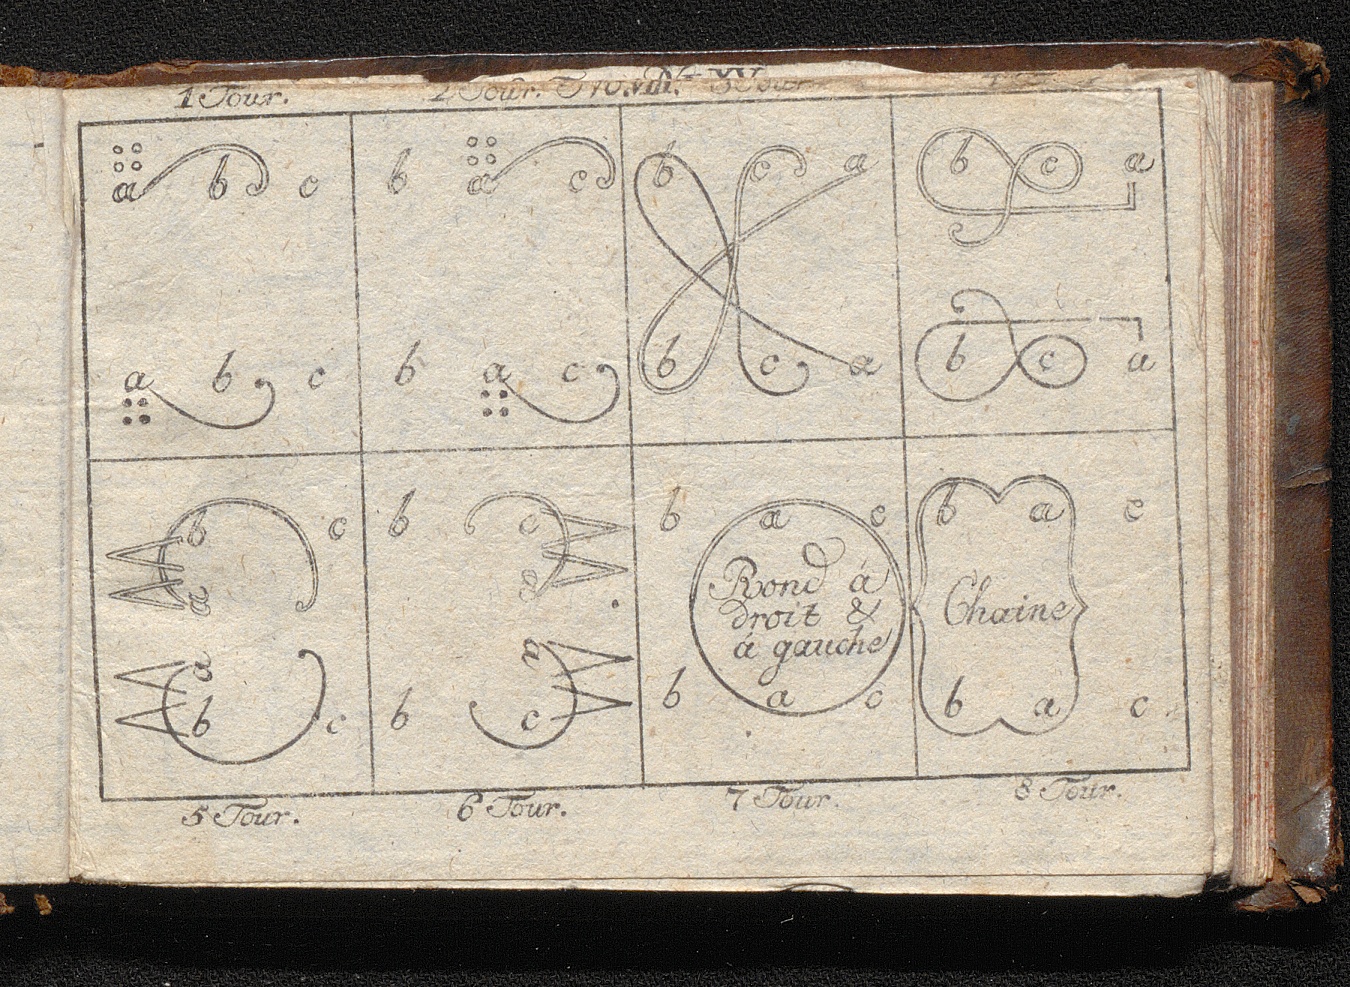 1 Tour. 2 Tour. 3 Tour
a b c
a b c
b a c
b a c
b c a
b c a
b c a
b c a
b c
a
a
b c
b c
a
a
b c
b a c
Rond á
droit &
á gauche
b a c
b a c
Chaine
b a c
5 Tour. 6 Tour. 7 Tour. 8 Tour.